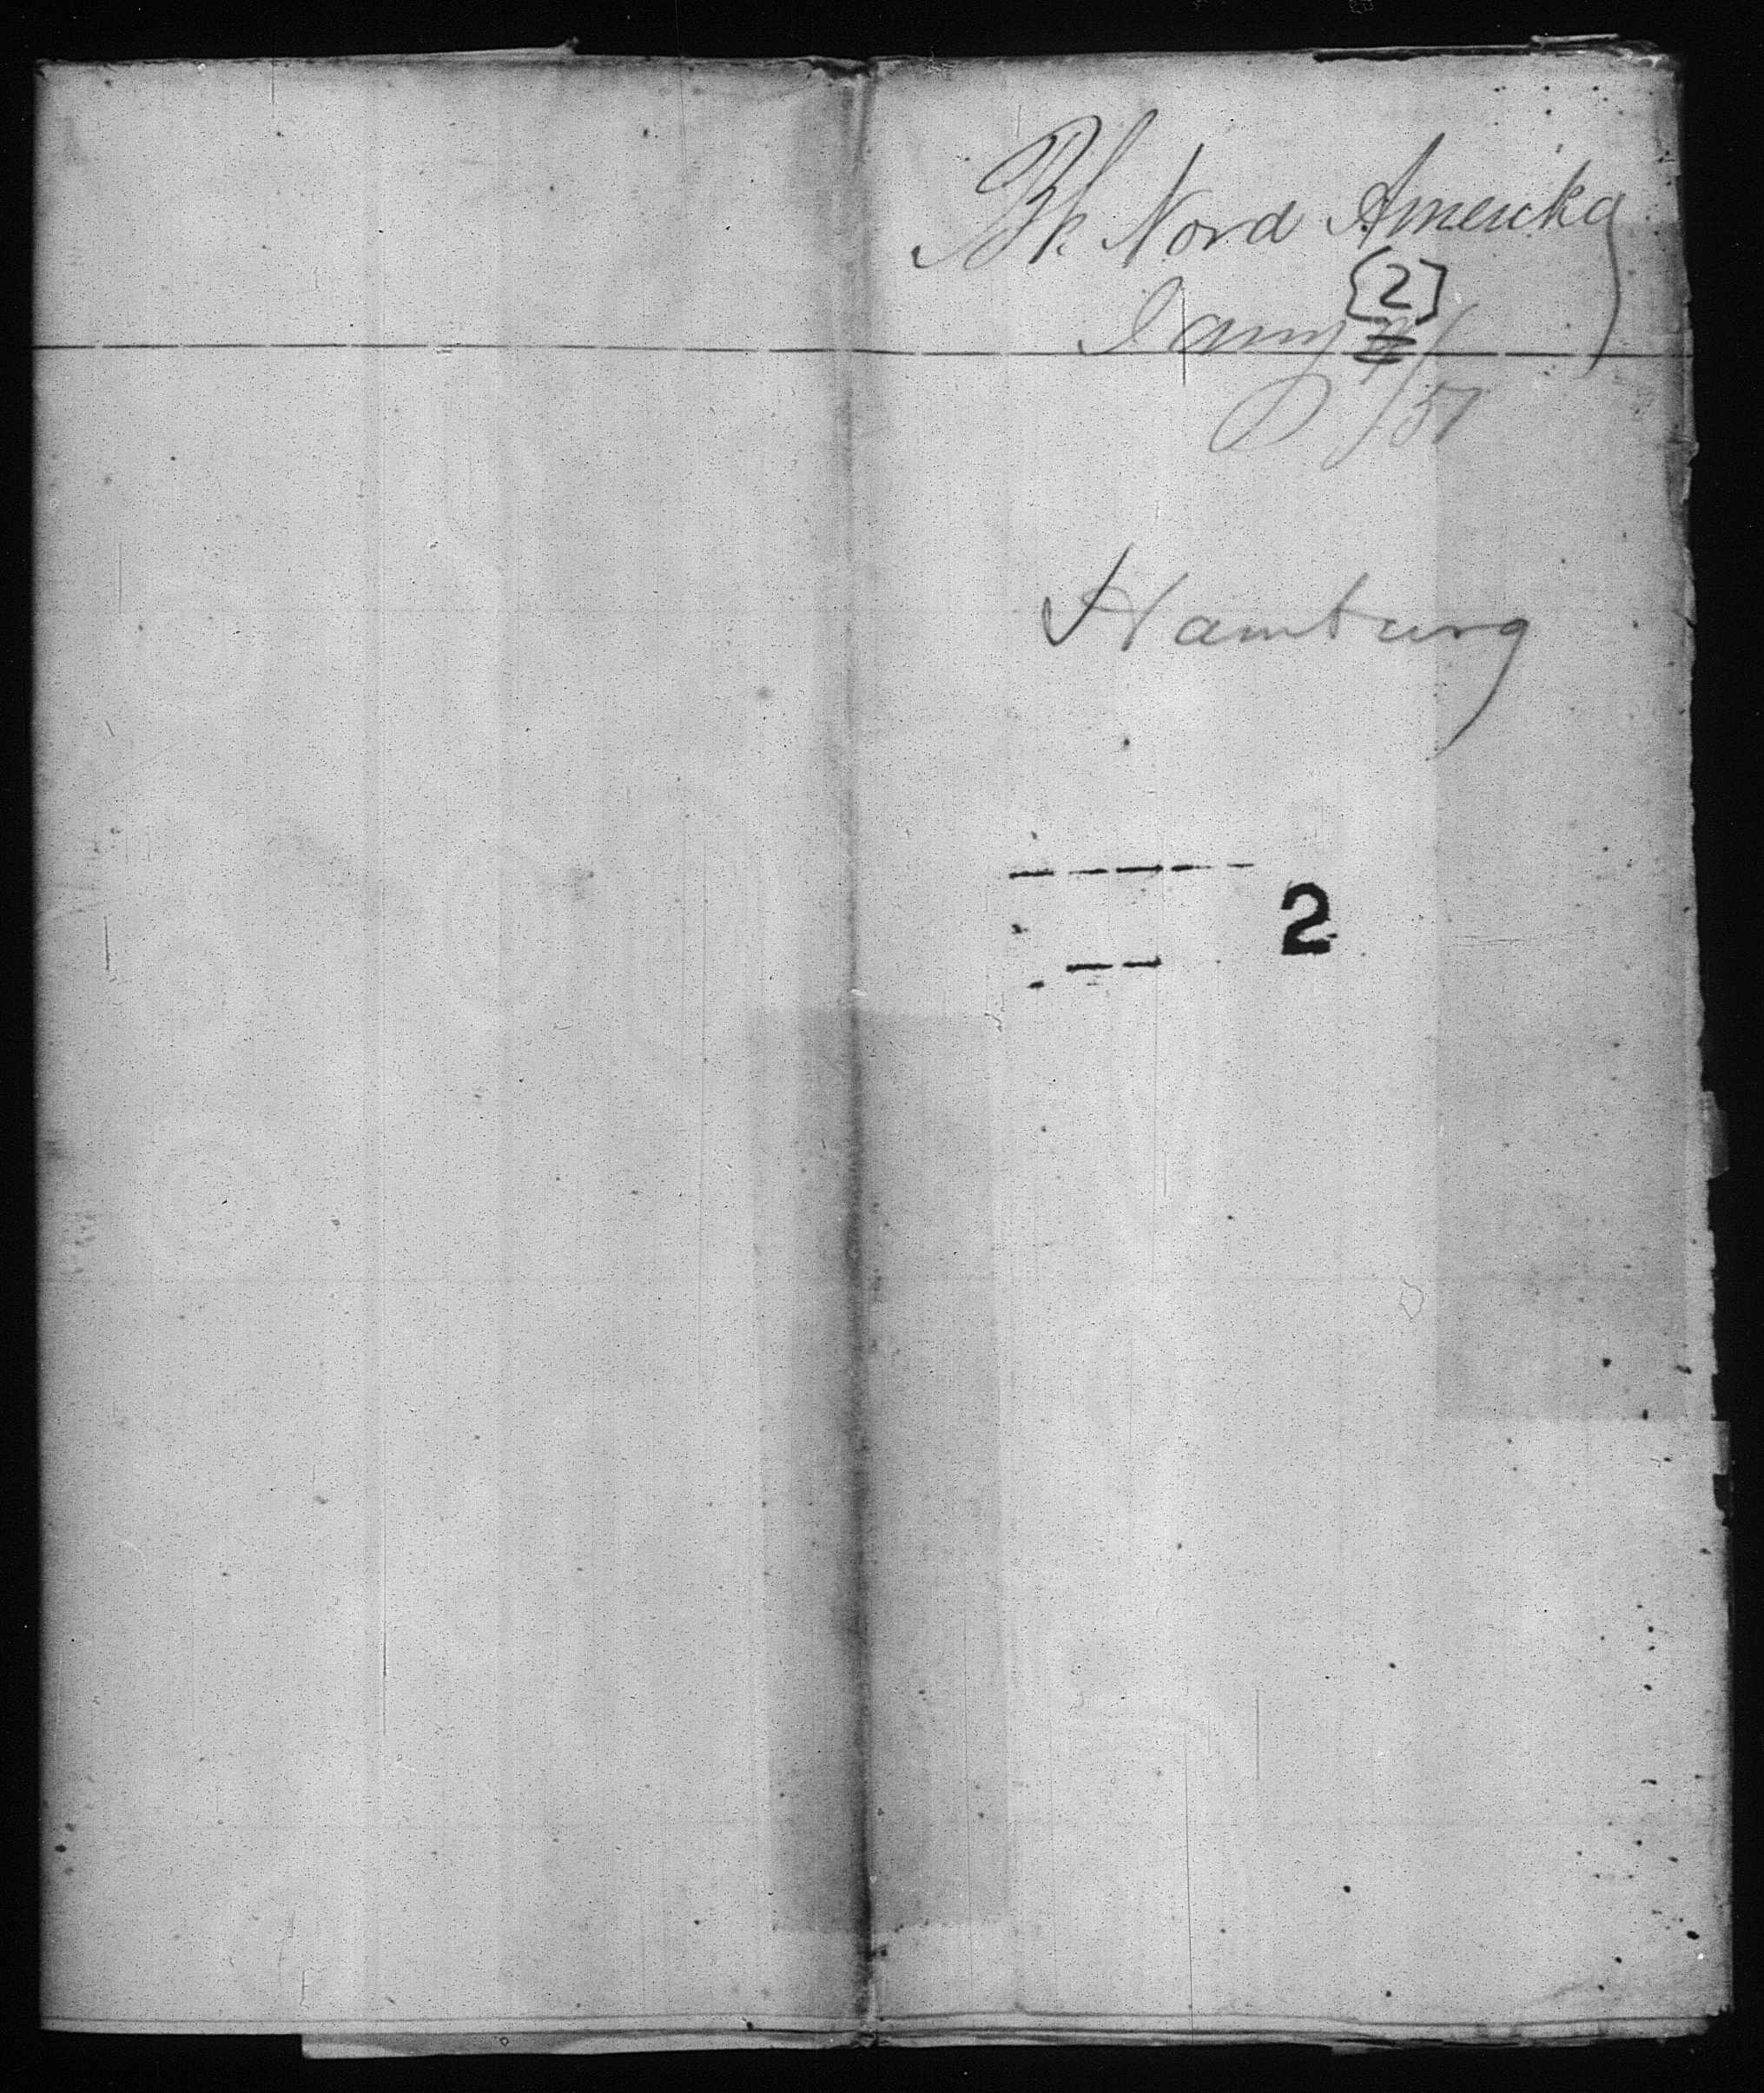 Bk Nord Amerika
[2]
Jany
/51
Hamburg
2